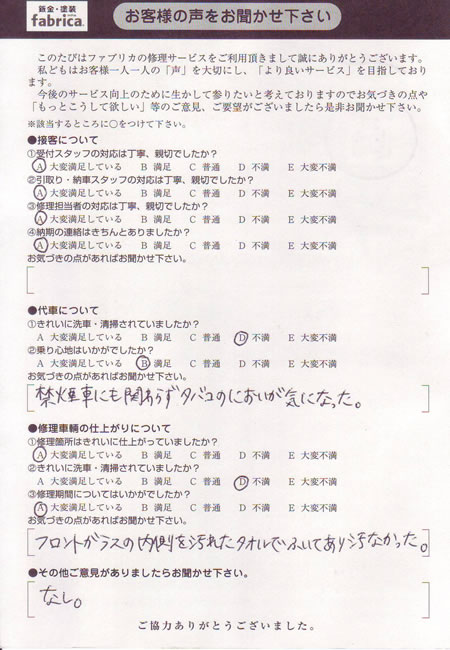 鈑金・塗装
fabrica.
お客様の声をお聞かせ下さい
このたびはファブリカの修理サービスをご利用頂きまして誠にありがとうございます。
私どもはお客様一人一人の「声」を大切にし、「より良いサービス」を目指しており
ます。
今後のサービス向上のために生かして参りたいと考えておりますのでお気づきの点や
「もっとこうして欲しい」等のご意見、ご要望がございましたら是非お聞かせ下さい。
※該当するところに○をつけて下さい。
●接客について
①受付スタッフの対応は丁寧、親切でしたか？
A 大変満足している B 満足 C 普通 D 不満 E 大変不満
②引取り・納車スタッフの対応は丁寧、親切でしたか？
A 大変満足している B 満足 C 普通 D 不満 E 大変不満
③修理担当者の対応は丁寧、親切でしたか？
A 大変満足している B 満足 C 普通 D 不満 E 大変不満
④納期の連絡はきちんとありましたか？
A 大変満足している B 満足 C 普通 D 不満 E 大変不満
お気づきの点があればお聞かせ下さい。
●代車について
①きれいに洗車・清掃されていましたか？
A 大変満足している B 満足 C 普通 D 不満 E 大変不満
②乗り心地はいかがでしたか？
A 大変満足している B 満足 C 普通 D 不満 E 大変不満
お気づきの点があればお聞かせ下さい。
禁煙車にも関わらずタバコのにおいが気になった。
●修理車輌の仕上がりについて
①修理箇所はきれいに仕上がっていましたか？
A 大変満足している B 満足 C 普通 D 不満 E 大変不満
②きれいに洗車・清掃されていましたか？
A 大変満足している B 満足 C 普通 D 不満 E 大変不満
③修理期間についてはいかがでしたか？
A 大変満足している B 満足 C 普通 D 不満 E 大変不満
お気づきの点があればお聞かせ下さい。
フロントガラスの内側を汚れたタオルでふいてあり汚なかった。
●その他ご意見がありましたらお聞かせ下さい。
なし。
ご協力ありがとうございました。